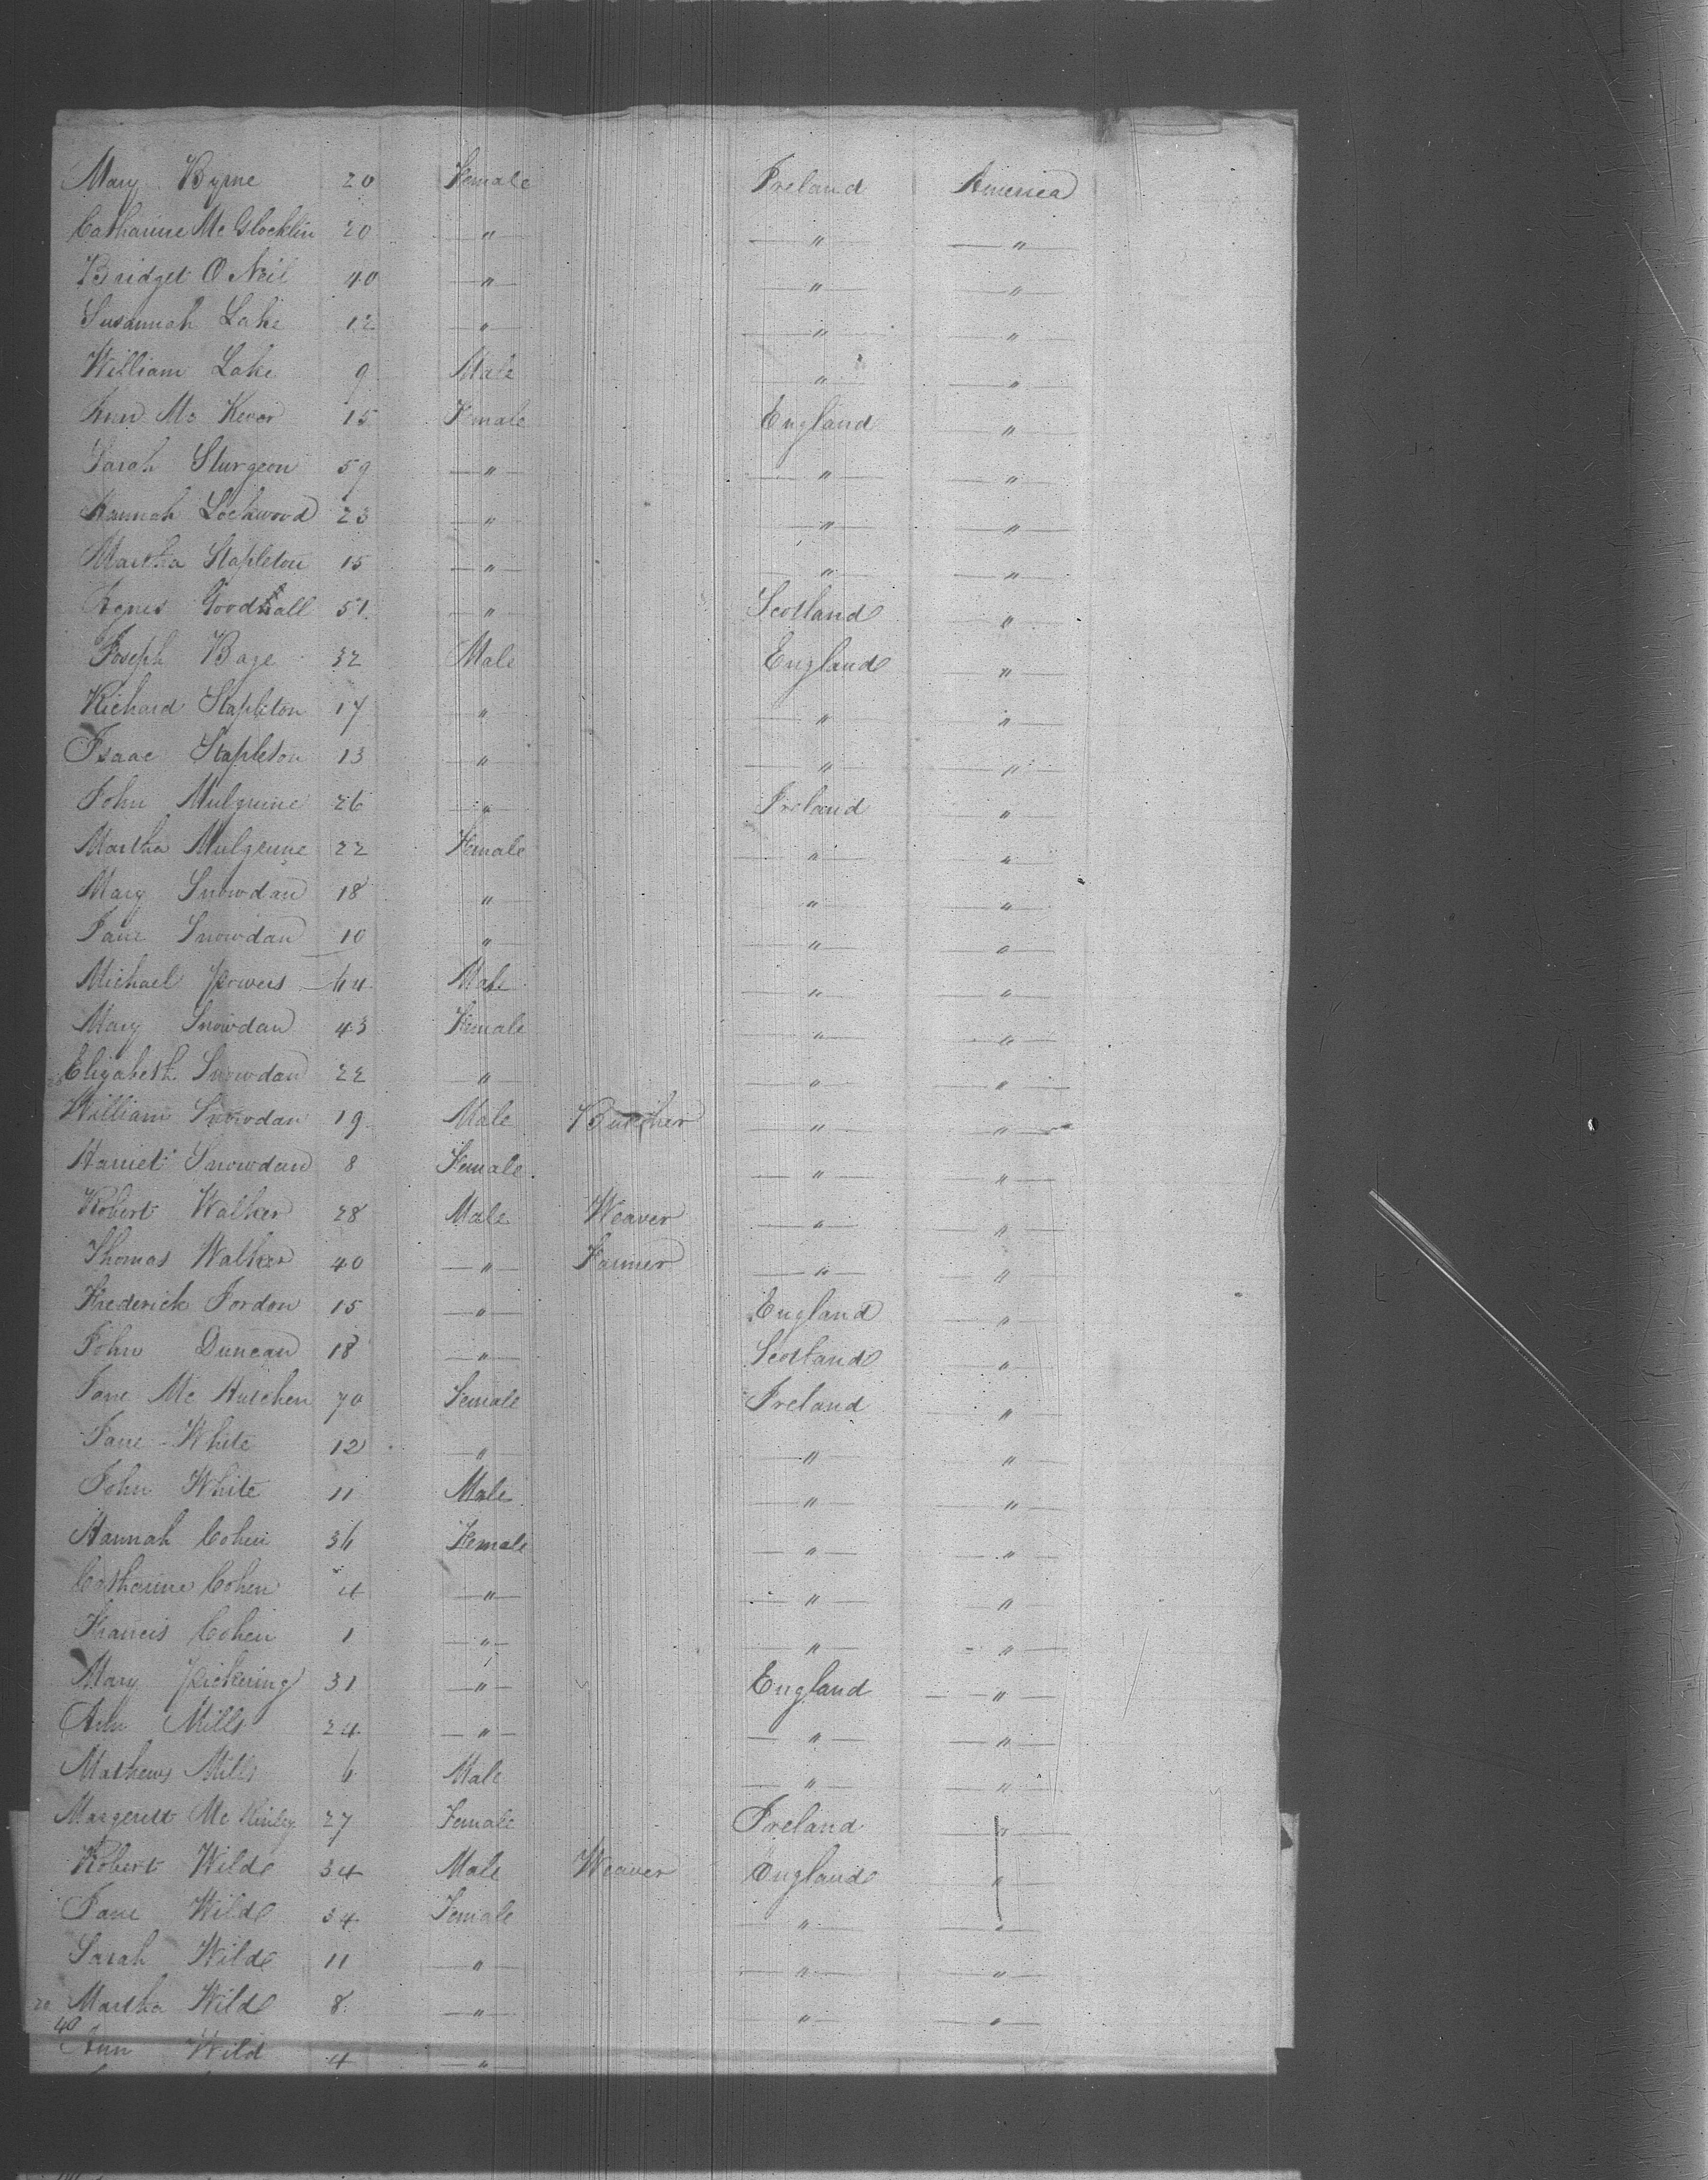 Mary Byrne 20 Female Ireland America
Catharine Mc Glocklin 20 — " — — " — — " —
Bridget O Neil 40 — " — — " — — " —
Susannah Lake 12 — " — — " — — " —
William Lake 9 Male — " — — " —
Ann Mc Kever 15 Female England — " —
Sarah Sturgeon 59 — " — — " — — " —
Hannah Lockwood 23 — " — — " — — " —
Martha Stapleton 15 — " — — " — — " —
Agnes Goodhall 51 — " — Scotland — " —
Joseph Bage 32 Male England — " —
Richard Stapleton 17 — " — — " — — " —
Isaac Stapleton 13 — " — — " — — " —
John Mulgrine 26 — " — Ireland — " —
Martha Mulgrine 22 Female — " — — " —
Mary Snowdan 18 — " — — " — — " —
Jane Snowdan 10 — " — — " — — " —
Michael Powers 44 Male — " — — " —
Mary Snowdan 43 Female — " — — " —
Elizabeth Snowdan 22 — " — — " — — " —
William Snowdan 19 Male Butcher — " — — " —
Harriet Snowdan 8 Female — " — — " —
Robert Walker 28 Male Weaver — " — — " —
Thomas Walker 40 — " — Farmer — " — — " —
Frederick Jordon 15 — " — England — " —
John Duncan 18 — " — Scotland — " —
Jane Mc Hutchen 70 Female Ireland — " —
Jane White 12 — " — — " — — " —
John White 11 Male — " — — " —
Hannah Cohen 36 Female — " — — " —
Catharine Cohen 4 — " — — " — — " —
Francis Cohen 1 — " — — " — — " —
Mary Pickering 31 — " — England — " —
Ann Mills 24 — " — — " — — " —
Mathews Mills 6 Male — " — — " —
Margerett Mc Kinley 27 Female Ireland — " —
Robert Wild 34 Male Weaver England — " —
Jane Wild 34 Female — " — — " —
Sarah Wild 11 — " — — " — — " —
Martha Wild 8 — " — — " — — " —
40
Ann Wild 4 — " —